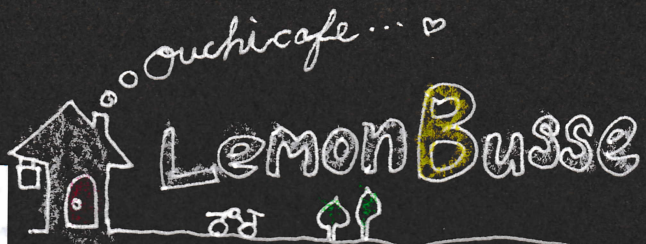 ouchicafe...♡
LemonBusse